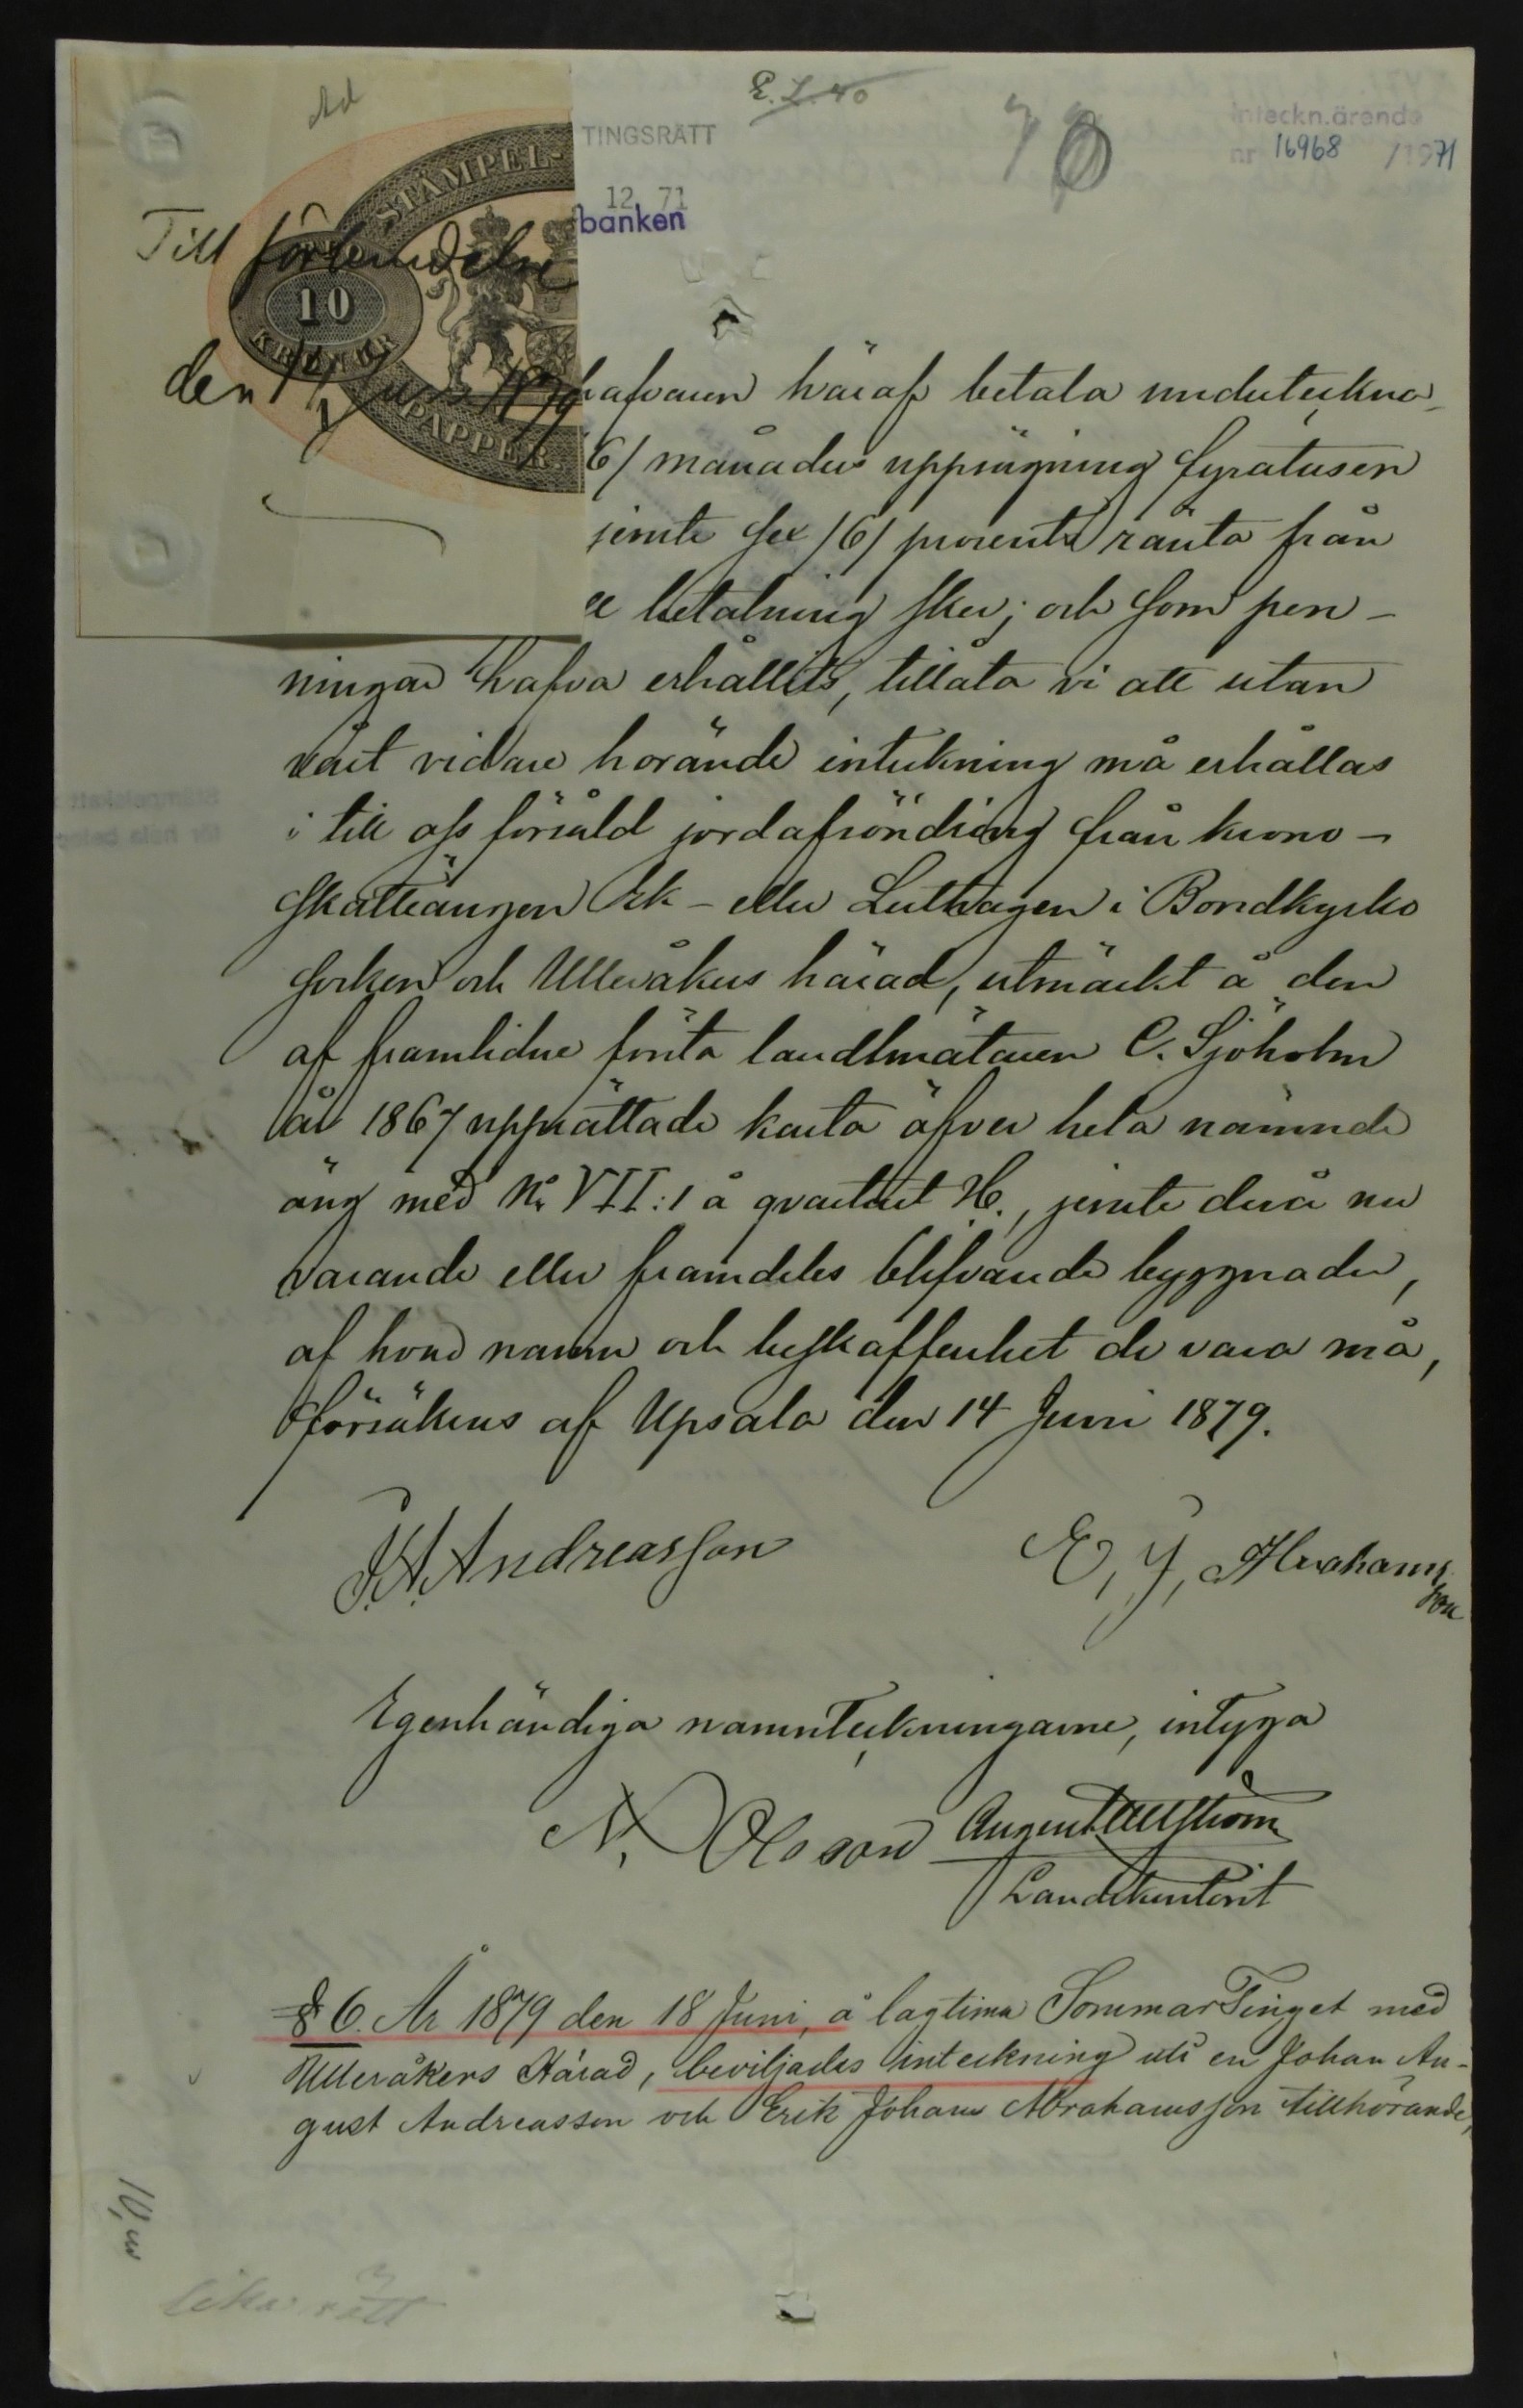 Ad
E. L. 40
70
Inteckn.ärende
nr 16968 / 1971
TINGSRÄTT
12 71
banken
STÄMPEL-
10
KRONOR
PAPPER.
Till förbindelse
den 14 Juni 1879
hafvaren häraf betala underteckna-
/6/ månaders uppsägning fyratusen
jemte sex /6/ procents ränta från
betalning sker; och som pen-
ningar hafva erhållits, tillåta vi att utan
vårt vidare hörande inteckning må erhållas
i till oss försåld jordafsöndring från krono-
skatteängen Ek- eller Luthagen i Bondkyrko
socken och Ulleråkers härad, utmärkt å den
af framlidne förste landtmätaren C. Sjöholm
år 1867 upprättade karta öfver hela nämnde
äng med No VII:1 å qvarteret H., jemte derå nu
varande eller framdeles blifvande byggnader,
af hvad namn och beskaffenhet de vara må,
försäkras af Upsala den 14 Juni 1879.
J. A. Andreasson
E, J, Abrahams
son
Egenhändiga namnteckningarne, intyga
N. Olsson
August
Landtkontorist
§ 6. År 1879 den 18 Juni, å lagtima SommarTinget med
Ulleråkers Härad, beviljades inteckning uti en Johan Au-
gust Andreasson och Erik Johan Abrahamsson tillhörande,
lika rätt